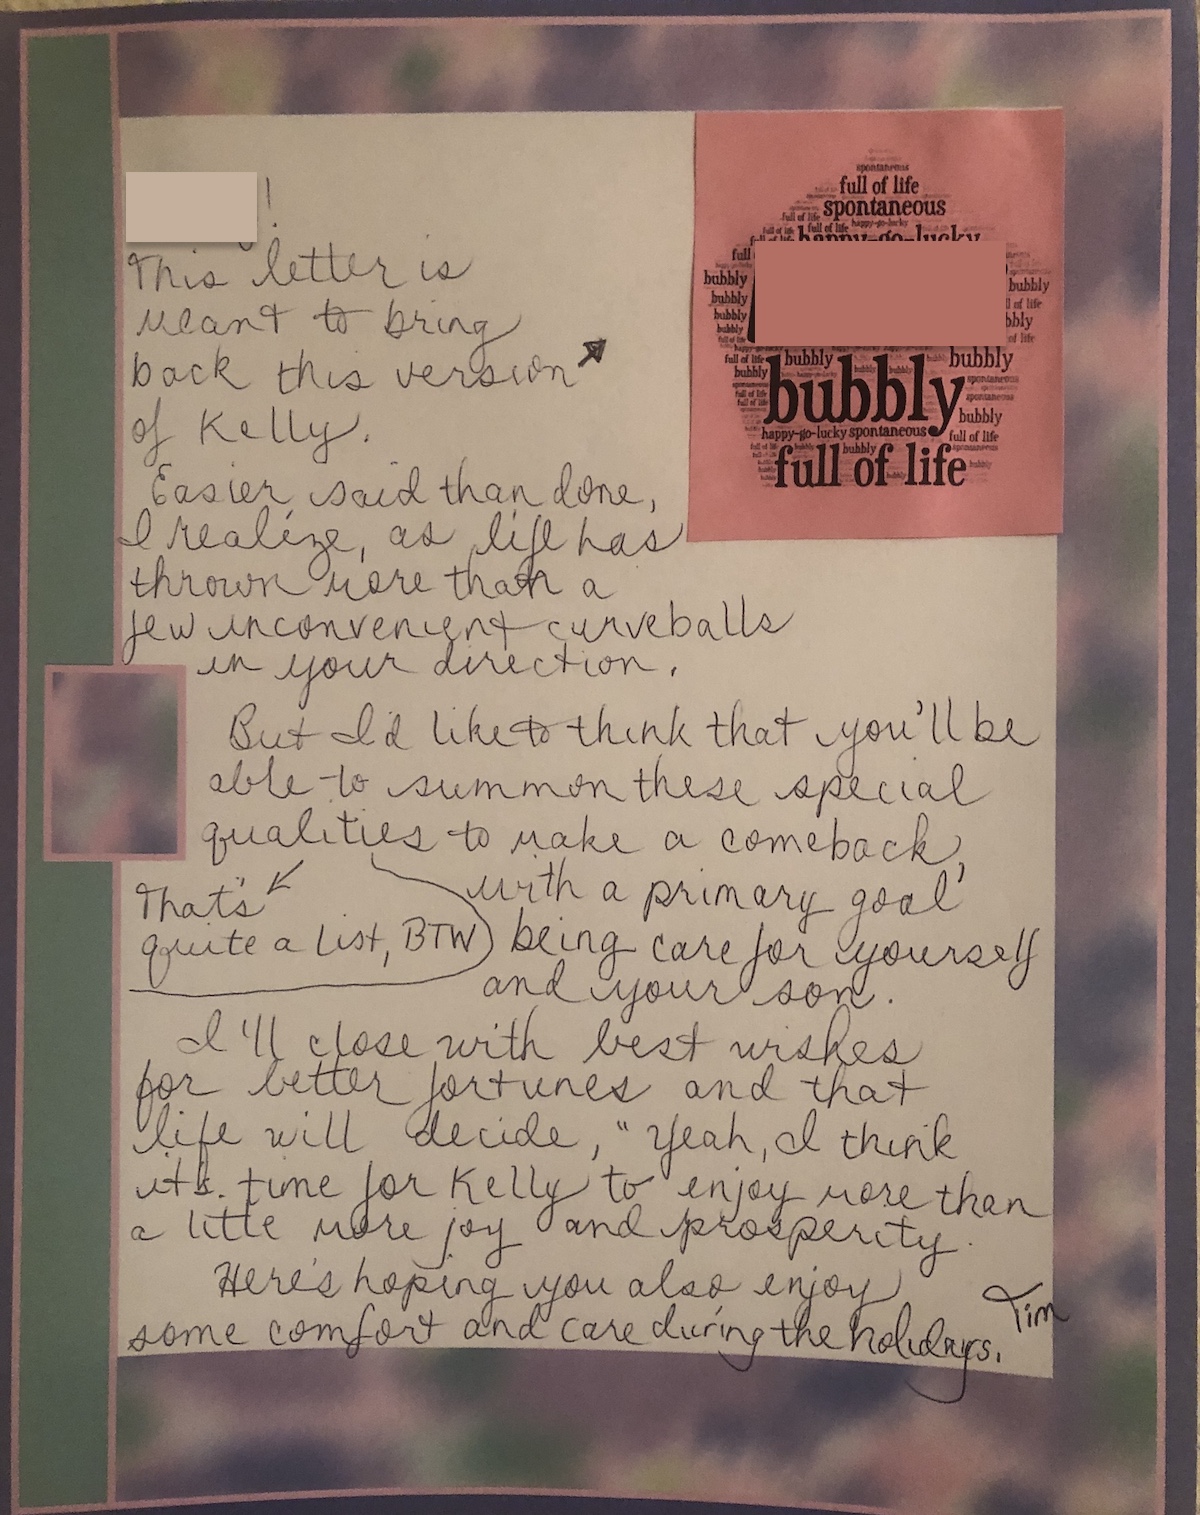 !
This letter is
meant to bring
back this version
of Kelly.
Easier said than done,
I realize, as life has
thrown more than a
few inconvenient curveballs
in your direction.
But I'd like to think that you'll be
able to summon these special
qualities to make a comeback,
with a primary goal
being care for yourself
and your son.
That's
quite a list, BTW
I'll close with best wishes
for better fortunes and that
life will decide, "Yeah, I think
it's time for Kelly to enjoy more than
a little more joy and prosperity.
Here's hoping you also enjoy
some comfort and care during the holidays.
Tim
spontaneous
full of life
spontaneous
full of life happy-go-lucky
full of life full of life
happy-go-lucky
full
bubbly bubbly
bubbly of life
bubbly bbly
bubbly of life
full of life bubbly bubbly bubbly
bubbly bubbly spontaneous
spontaneous
bubbly
happy-go-lucky spontaneous full of life
bubbly spontaneous
full of life bubbly